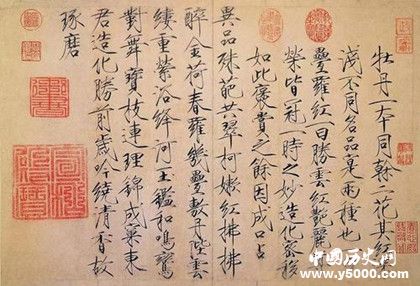 牡丹一本同榦二花其紅
淺不同名品寔兩種也
疊羅紅一曰勝雲紅艷麗
榮皆冠一時之妙造化密移
如此褒賞之餘因成口占
異品殊葩共翠柯嫩紅拂拂
醉金荷春羅幾疊敷丹陛雲
縷重縈浴絳河玉鑑和鳴鸞
對舞寶枝連理錦成窠東
君造化勝前歲吟繞清香故
琢磨
中国历史网
www.y5000.com